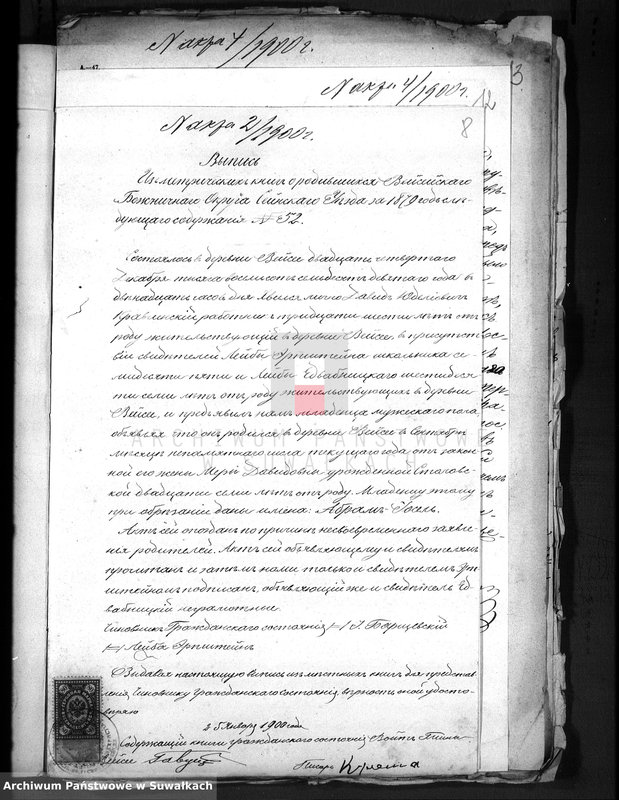 N акта 4/1900 г.
А.—47.
3.
N акта 4/1900 г.
12
N акта 2/1900 г.
8
Выпись
Изъ метрическихъ книгъ о родившихся Вейсейскаго
Божничнаго Округа Сейнскаго Уѣзда за 1879 годъ слѣ-
дующаго содержанія № 52.
Состоялось въ деревни Вейсе двадцать четвертаго
Декабря тысяча восемьсотъ семьдесятъ девятаго года въ
двѣнадцать часовъ дня. Явился лично Давидъ Юделовичъ
Кравлинскій работникъ тридцати шести лѣтъ отъ
роду жительствующій въ деревни Вейсе, въ присутст-
віи свидѣтелей Лейбы Эрпштейна школьника се-
мидесяти пяти и Лейбы Едвабницкаго шестидеся-
ти семи лѣтъ отъ роду жительствующихъ въ деревни
Вейсе, и предъявилъ намъ младенца мужескаго пола,
объявляя что онъ родился въ деревни Вейсе въ Сентябрѣ
мѣсяцѣ непомятнаго числа текущаго года отъ закон-
ной его жены Меры Давидовны урожденной Стаговс-
кой двадцати семи лѣтъ отъ роду. Младенцу этому
при обрѣзаніи даны имена: Абрамъ-Іосель.
Актъ сей опозданъ по причинѣ несвоевременнаго заявле-
нія родителей. Актъ сей объявляющему и свидѣтелямъ
прочитанъ и затѣмъ нами только и свидѣтелемъ Эрп-
штейномъ подписанъ, объявляющій же и свидѣтель Ед-
вабницкій неграмотные.
Чиновникъ Гражданскаго состоянія /-/ І. Борицевскій
/-/ Лейба Эрпштейнъ
Выдавая настоящую выпись изъ мѣстныхъ книгъ для представ-
ленія Чиновнику Гражданскаго Состоянія, вѣрность оной удосто-
вѣряю
25 Января 1900 года
Содержащій книги гражданскаго состоянія Войтъ Гмины
Вейсе
Писарь
ARCHIWUM PAŃSTWOWE
W SUWAŁKACH
Archiwum Państwowe w Suwałkach